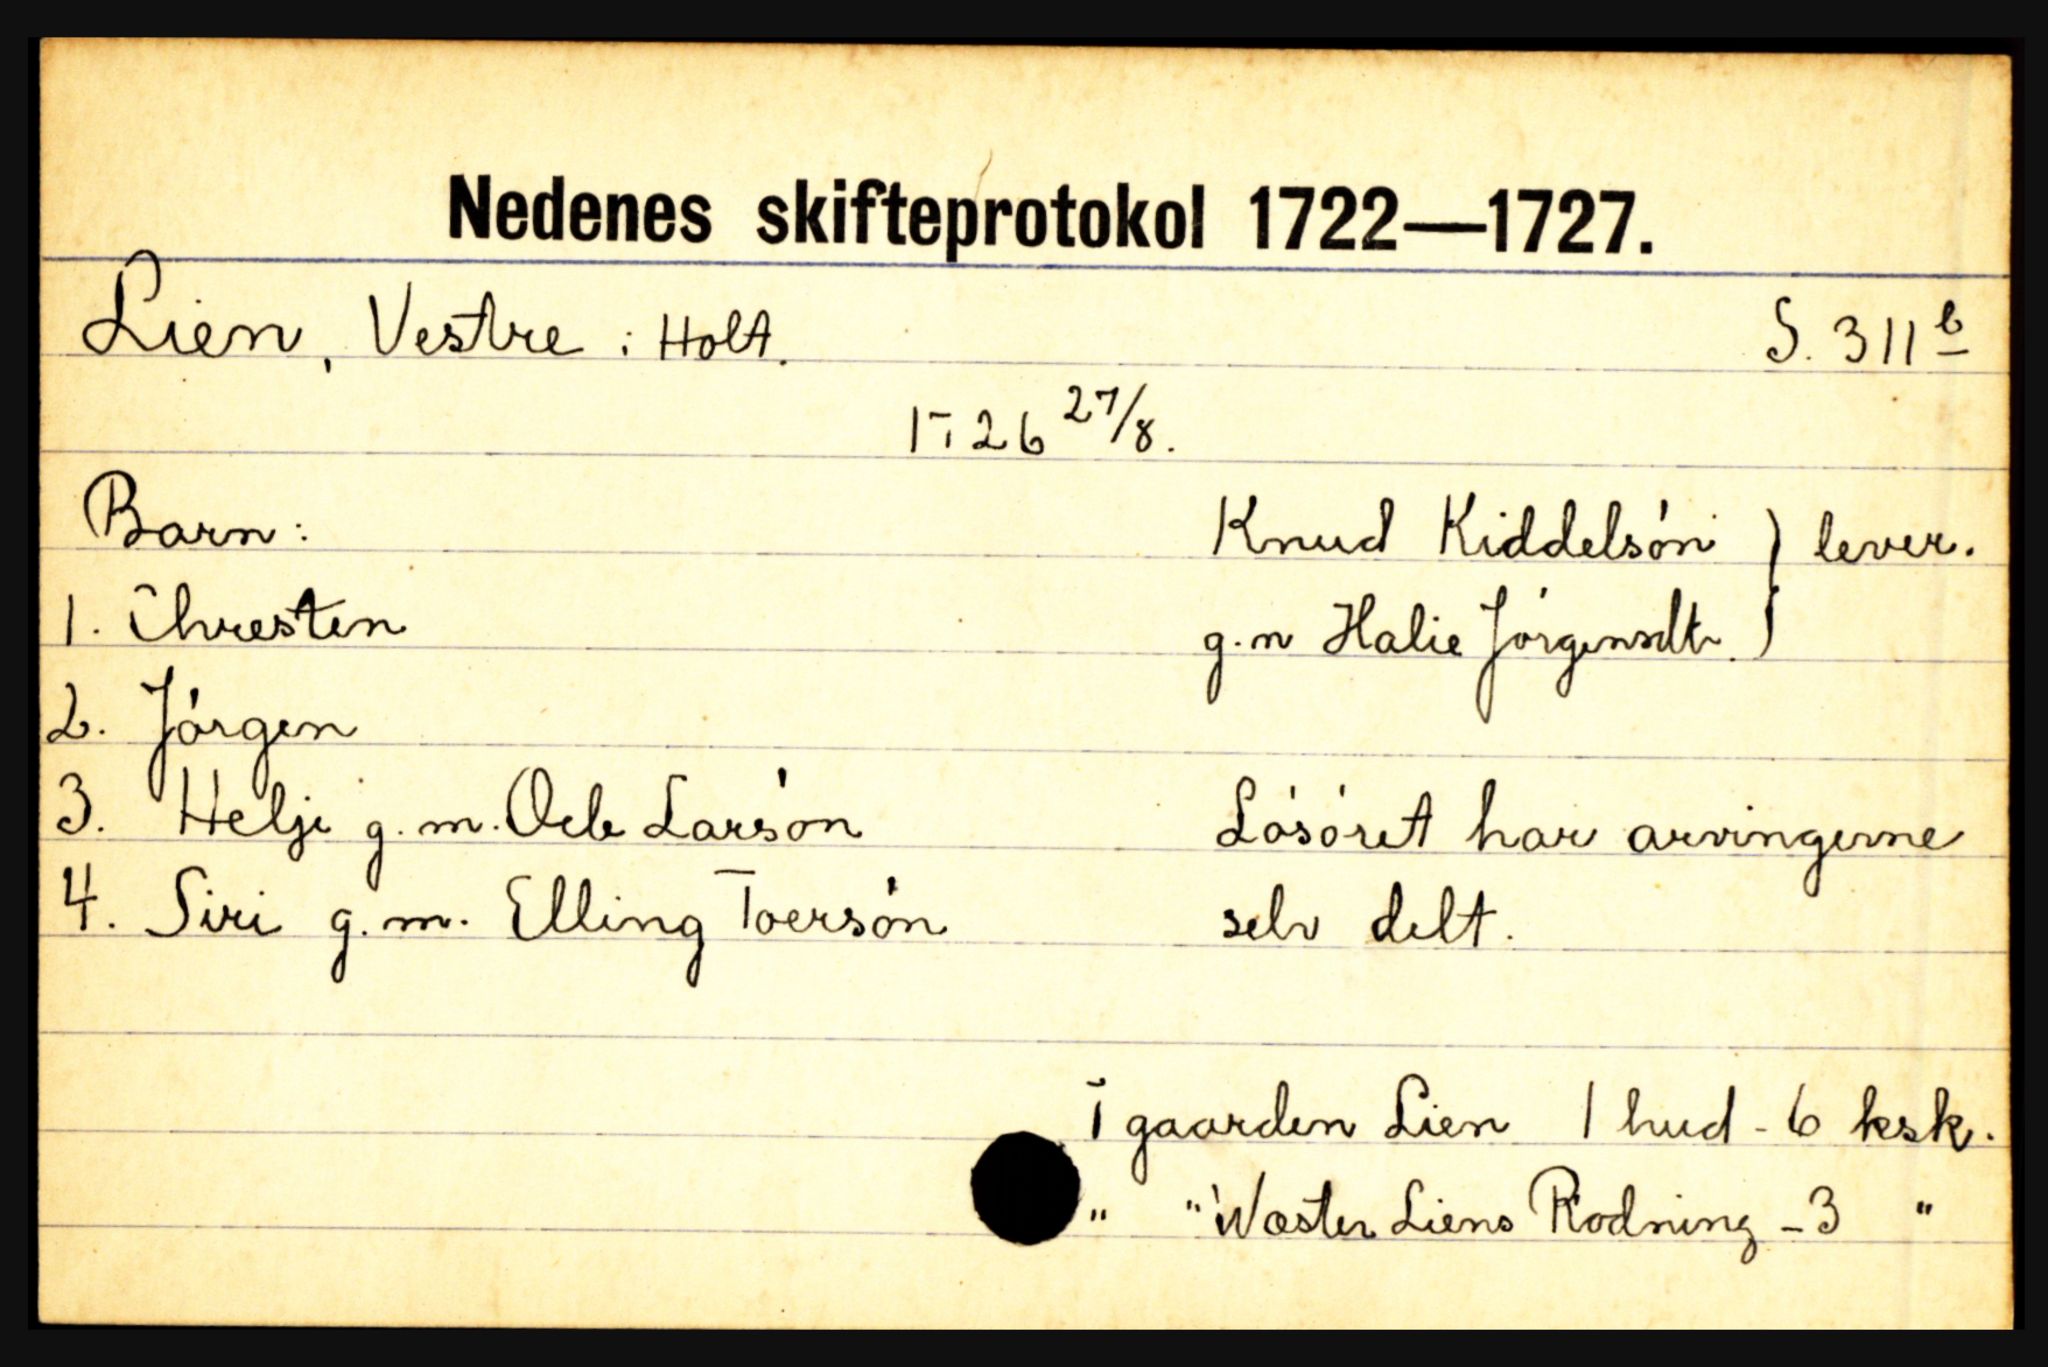 Nedenes skifteprotokol 1722—1727.
Lien, Vestre i Holt. S. 311 b
1726 27/8.
Barn:
1. Chresten
2. Jörgen
3. Helje g. m. Ole Larsön
4. Siri g. m. Elling Toersön
Knud Kiddelsön } lever.
g. m Halie Jörgensdtr. }
Lösöret har arvingerne
selv delt.
I gaarden Lien 1 hud - 6 ksk.
" " Wæster Liens Rödning - 3 "